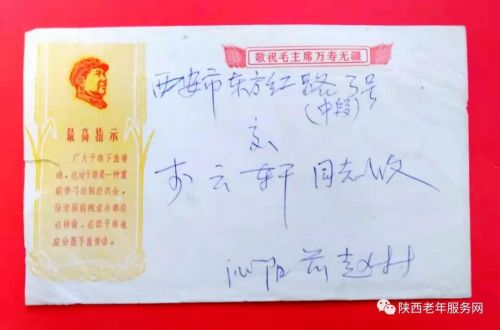 敬祝毛主席万寿无疆
最高指示
广大干部下放劳
动，这对干部是一种重
新学习的极好机会，
除老弱病残者外都应
这样做。在职干部也
应分批下放劳动。
西安市东方红路3号
(中段)
交
李云轩 同志收
沁阳 前赵村
陕西老年服务网